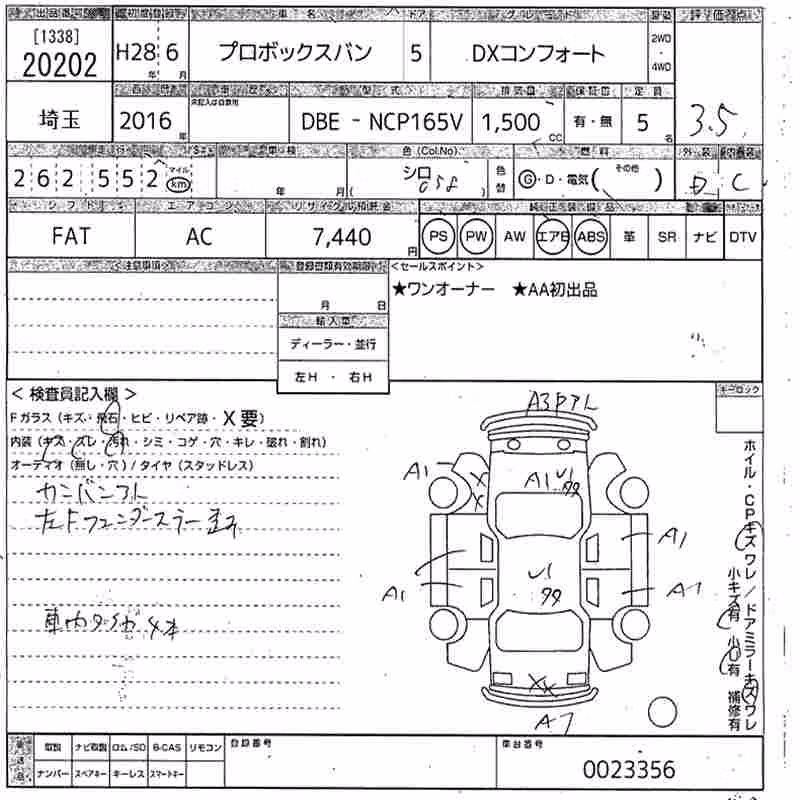 [1338]
20202
H28 年 6 月
車名
ドア
グレード
プロボックスバン 5 DXコンフォート
2WD
・
4WD
評価点
3.5
埼玉
2016 年
型式
排気量
定員
DBE - NCP165V 1,500 CC 有・無 5 名
262,552 マイル km
車検
年 月
色(Col.No)
シロ
058
色替
燃料
G・D・電気( その他 )
外装
内装
D C
シフト
エアコン
リサイクル預託金
純正装備品
FAT AC 7,440 円 PS PW AW エアB ABS 革 SR ナビ DTV
<注意事項>
登録書類有効期限
月 日
輸入車
ディーラー・並行
左H ・ 右H
<セールスポイント>
★ワンオーナー ★AA初出品
キーロック
< 検査員記入欄 >
Fガラス (キズ・飛石・ヒビ・リペア跡・X要)
内装 (キズ・スレ・汚れ・シミ・コゲ・穴・キレ・破れ・割れ)
オーディオ (無し・穴) / タイヤ (スタッドレス)
カンバンフト
左Fフェンダーステー歪
車内タイヤ4本
A1
X
X
A1 U1
A1
A1
U1
XX
A7
ホイル・CPキズ ワレ / ドアミラーキズワレ
小キズ有 小U有 補修有
取説 ナビ取説 ロム/SD B-CAS リモコン
ナンバー スペアキー キーレス スマートキー
登録番号
車台番号
0023356